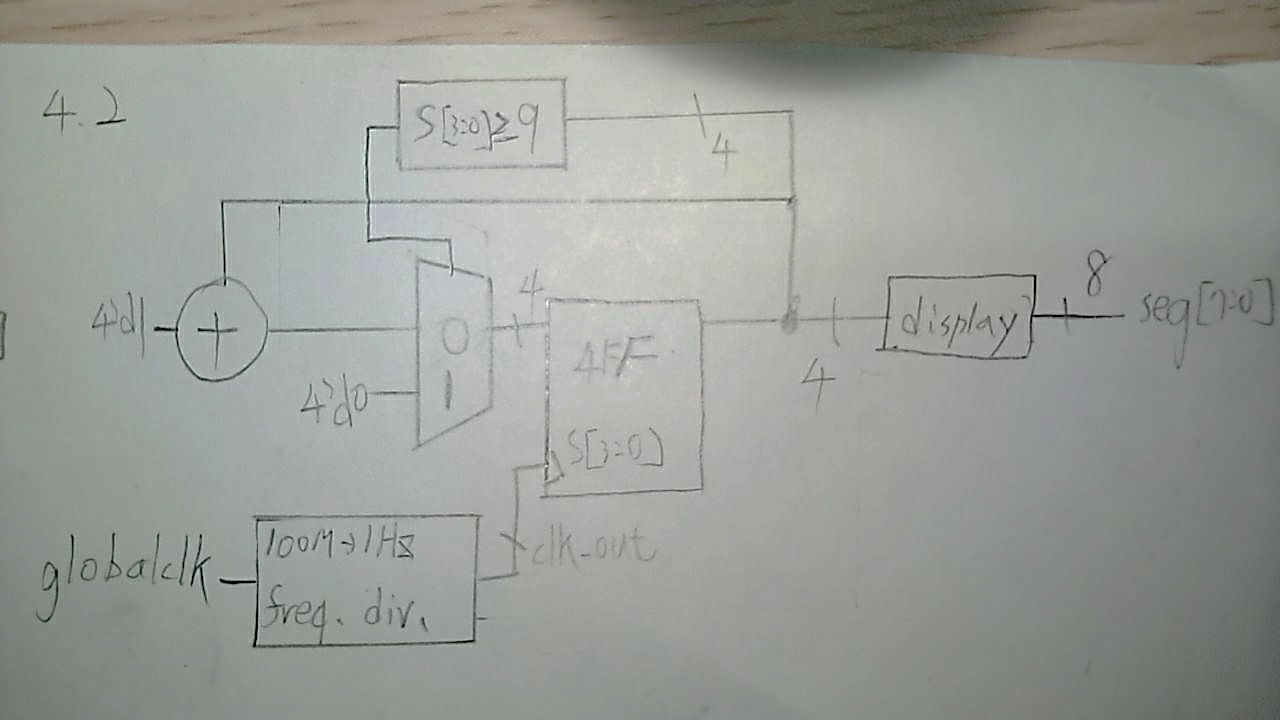 4.2
S[3:0]≥9
4
4'd1
+
4'd0
0
1
4
4FF
S[3:0]
4
display
8
seg[7:0]
globalclk
100M→1Hz
freq. div.
clk_out
]